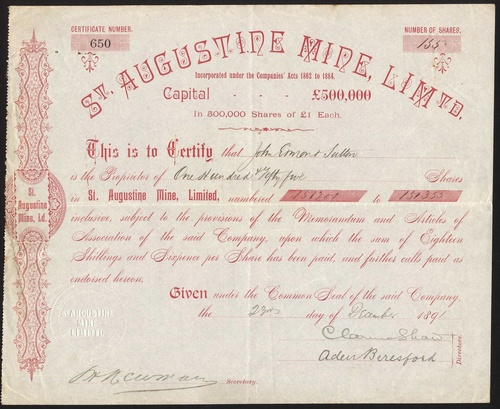 CERTIFICATE NUMBER.
650
NUMBER OF SHARES.
155
ST. AUGUSTINE MINE, LIMTD.
Incorporated under the Companies' Acts 1862 to 1884.
Capital - - - £500,000
In 500,000 Shares of £1 Each.
This is to Certify that John Edmond Sutton
is the Proprietor of One Hundred & Fifty five Shares
in St. Augustine Mine, Limited, numbered to
inclusive, subject to the provisions of the Memorandum and Articles of
Association of the said Company, upon which the sum of Eighteen
Shillings and Sixpence per Share has been paid, and further calls paid as
endorsed hereon.
Given under the Common Seal of the said Company,
the 23rd day of December 1891
Aden Beresford
Directors
Secretary.
St.
Augustine
Mine, Ld.
ST AUGUSTINE
MINE
LIMITED